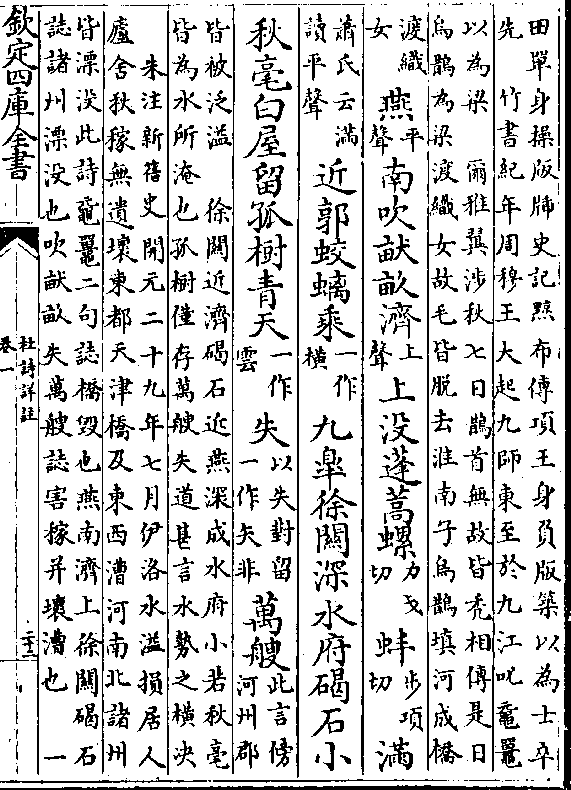 田單身操版牐史記黥布傳項王身負版築以為士卒
先　竹書紀年周穆王大起九師東至於九江叱黿鼉
以為梁　爾雅翼涉秋七日鵲首無故皆禿相傳是日
烏鵲為梁渡織女故毛皆脫去淮南子烏鵲填河成橋
渡織
女　燕平
聲南吹畎畝濟上
聲上没蓬蒿螺力戈
切蚌步項
切滿
蕭氏云滿
讀平聲　近郭蛟螭乘一作
橫九臯徐關深水府碣石小
秋毫白屋留孤樹青天一作
雲失以失對留
一作矢非萬艘此言傍
河州郡
皆被泛溢　徐關近濟碣石近燕深成水府小若秋毫
皆為水所淹也孤樹僅存萬艘失道甚言水勢之橫决
朱注新舊史開元二十九年七月伊洛水溢損居人
廬舍秋稼無遺壞東都天津橋及東西漕河南北諸州
皆漂没此詩黿鼉二句誌橋毁也燕南濟上徐關碣石
誌諸州漂没也吹畎畝失萬艘誌害稼并壞漕也　一
欽定四庫全書
杜詩詳註
卷一
二十三